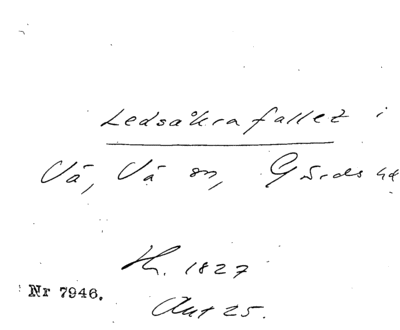 Ledsåkrafallet i
Vä, Vä sn, Gärds hd
H. 1827
Nr 7946.
Ant 25.